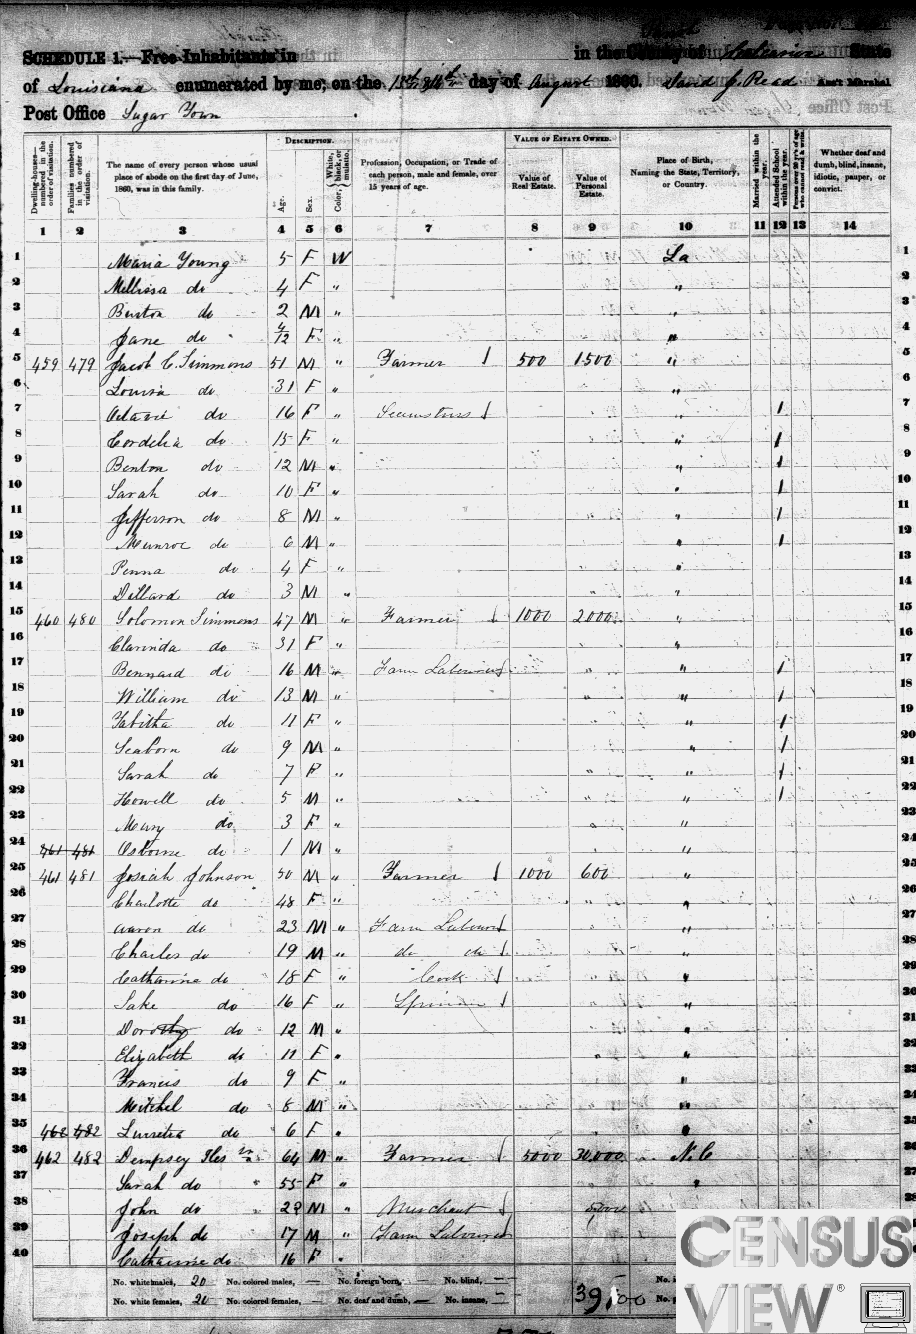 SCHEDULE 1.—Free Inhabitants in in the County of Calcasieu State
of Louisiana enumerated by me, on the day of August 1860. David J. Read Ass't Marshal
Post Office Sugar Town
Dwelling-houses—numbered in the order of visitation.
Families numbered in the order of visitation.
The name of every person whose usual place of abode on the first day of June, 1860, was in this family.
DESCRIPTION.
Age.
Sex.
Color, White, black, or mulatto.
Profession, Occupation, or Trade of each person, male and female, over 15 years of age.
VALUE OF ESTATE OWNED.
Value of Real Estate.
Value of Personal Estate.
Place of Birth, Naming the State, Territory, or Country.
Married within the year.
Attended School within the year.
Persons over 20 yrs of age who cannot read & write.
Whether deaf and dumb, blind, insane, idiotic, pauper, or convict.
1 2 3 4 5 6 7 8 9 10 11 12 13 14
1 Maria Young 5 F W La 1
2 Mellissa do 4 F " " 2
3 Burton do 2 M " " 3
4 Jane do 4/12 F " " 4
5 459 479 Jacob C. Simmons 51 M " Farmer 500 1500 " 5
6 Louisa do 31 F " " 6
7 Octavie do 16 F " " / 7
8 Cordelia do 15 F " " / 8
9 Benton do 12 M " " / 9
10 Sarah do 10 F " " / 10
11 Jefferson do 8 M " " / 11
12 Munroe do 6 M " " / 12
13 Penna do 4 F " " 13
14 Dillard do 3 M " " 14
15 460 480 Solomon Simmons 47 M " Farmer 1000 2000 " 15
16 Clarinda do 31 F " " 16
17 Bennard do 16 M " Farm Labourer " " / 17
18 William do 13 M " " " / 18
19 Tabitha do 11 F " " / 19
20 Seaborn do 9 M " " / 20
21 Sarah do 7 F " " " / 21
22 Howell do 5 M " " / 22
23 Mary do 3 F " " 23
24 461 481 Osborne do 1 M " " 24
25 461 481 Josiah Johnson 50 M " Farmer 1000 600 " 25
26 Charlotte do 48 F " " 26
27 Aaron do 23 M " Farm Labourer " 27
28 Charles do 19 M " do do " 28
29 Catharine do 18 F " Cook " 29
30 Sake do 16 F " " 30
31 Dorothy do 12 M " " 31
32 Elizabeth do 11 F " " 32
33 Francis do 9 F " " 33
34 Mitchel do 8 M " " 34
35 462 482 Luretia do 6 F " " 35
36 462 482 Dempsey Iles 64 M " Farmer 5000 30,000 N.C 36
37 Sarah do 55 F " " 37
38 John do 22 M " Merchant 38
39 Joseph do 17 M " Farm Labourer
40 Catharine do 16 F "
No. white males, 20 No. colored males, — No. foreign born, — No. blind, —
No. white females, 20 No. colored females, — No. deaf and dumb, — No. insane, —
CENSUS
VIEW®